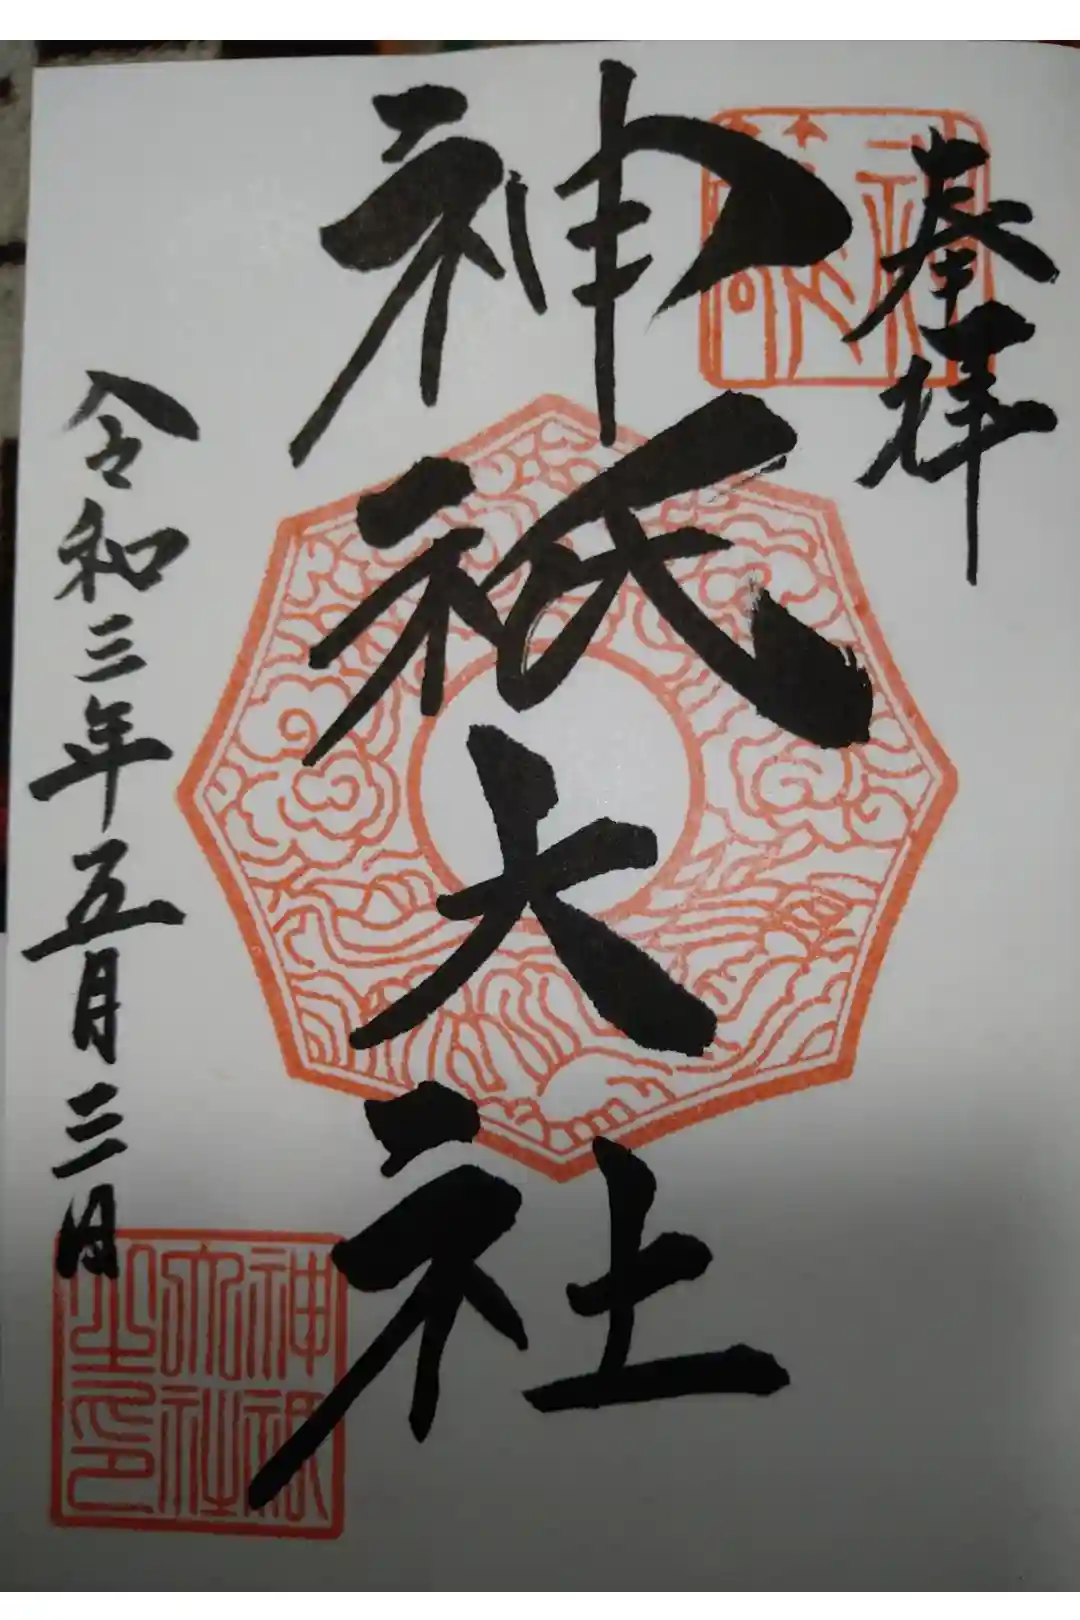 奉拝
神祇大社
令和三年五月三日
神祇
大社
之印